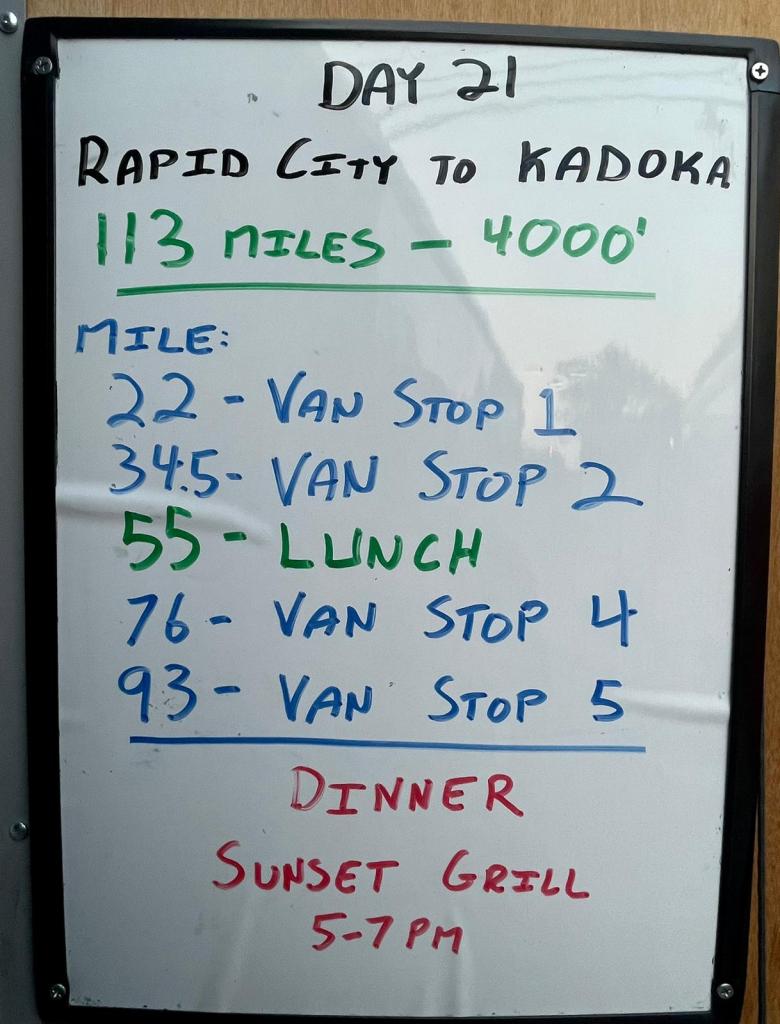 DAY 21
RAPID CITY TO KADOKA
113 MILES - 4000'
MILE:
22 - VAN STOP 1
34.5 - VAN STOP 2
55 - LUNCH
76 - VAN STOP 4
93 - VAN STOP 5
DINNER
SUNSET GRILL
5-7 PM